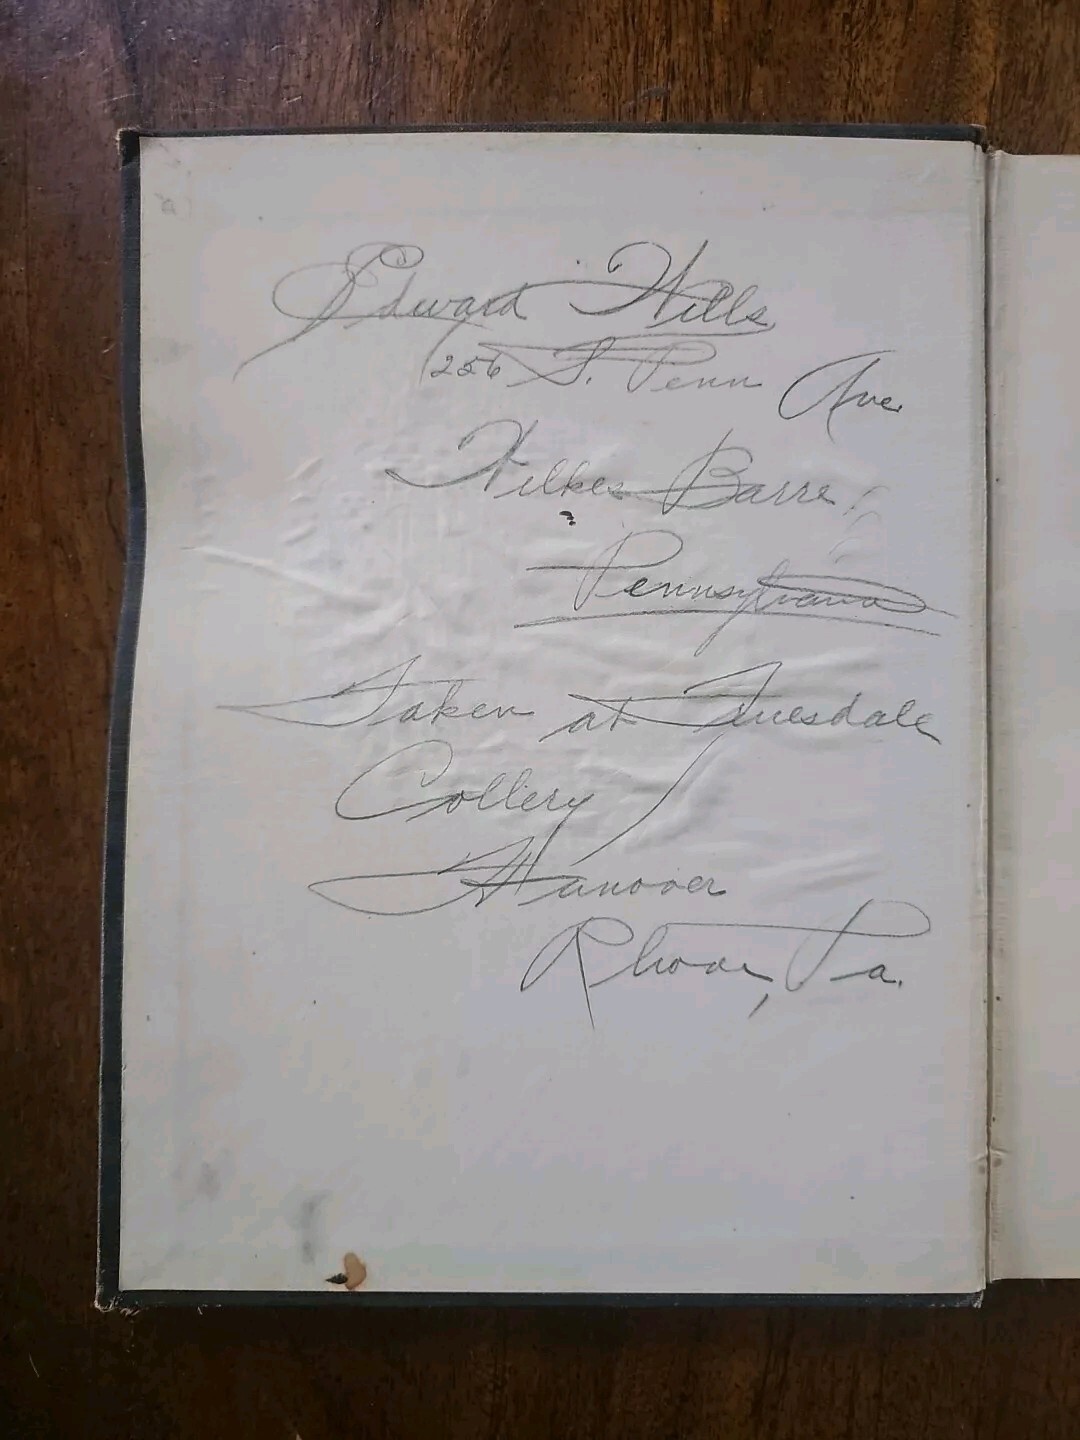 Edward Hills
256 S. Penn Ave
Wilkes Barre,
Pennsylvania
Taken at Truesdale
Collery
Hanover
Pa.